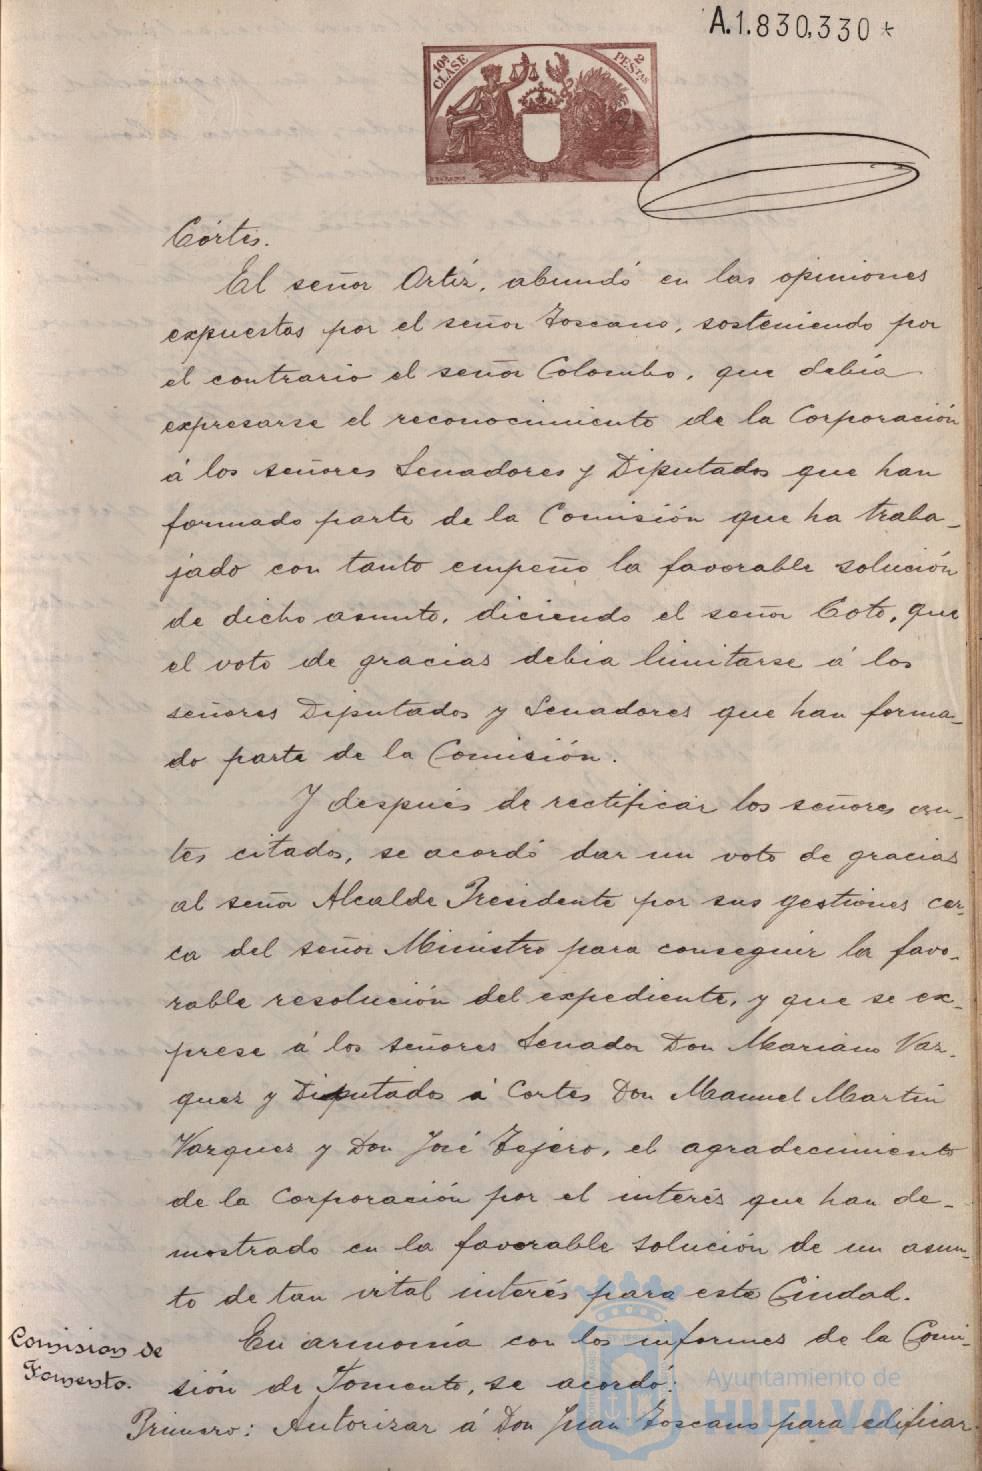 A.1.830,330 *
10ª CLASE
2 PESTAS
Córtes.
El señor Ortíz, abundó en las opiniones
expuestas por el señor Toscano, sosteniendo por
el contrario el señor Colombo, que debía
expresarse el reconocimiento de la Corporación
á los señores Senadores y Diputados que han
formado parte de la Comisión que ha traba-
jado con tanto empeño la favorable solución
de dicho asunto, diciendo el señor Coto, que
el voto de gracias debia limitarse á los
señores Diputados y Senadores que han forma-
do parte de la Comisión.
Y después de rectificar los señores an-
tes citados, se acordó dar un voto de gracias
al señor Alcalde Presidente por sus gestiones cer-
ca del señor Ministro para conseguir la favo-
rable resolución del expediente, y que se ex-
prese á los señores Senador Don Mariano Vaz-
quez y Diputados á Cortes Don Manuel Martín
Vazquez y Don José Tejero, el agradecimiento
de la Corporación por el interés que han de-
mostrado en la favorable solución de un asun-
to de tan vital interés para esta Ciudad.
Comision de
Fomento.
En armonía con los informes de la Comi-
sión de Fomento, se acordó:
Primero: Autorizar á Don Juan Toscano para edificar
Ayuntamiento de
HUELVA